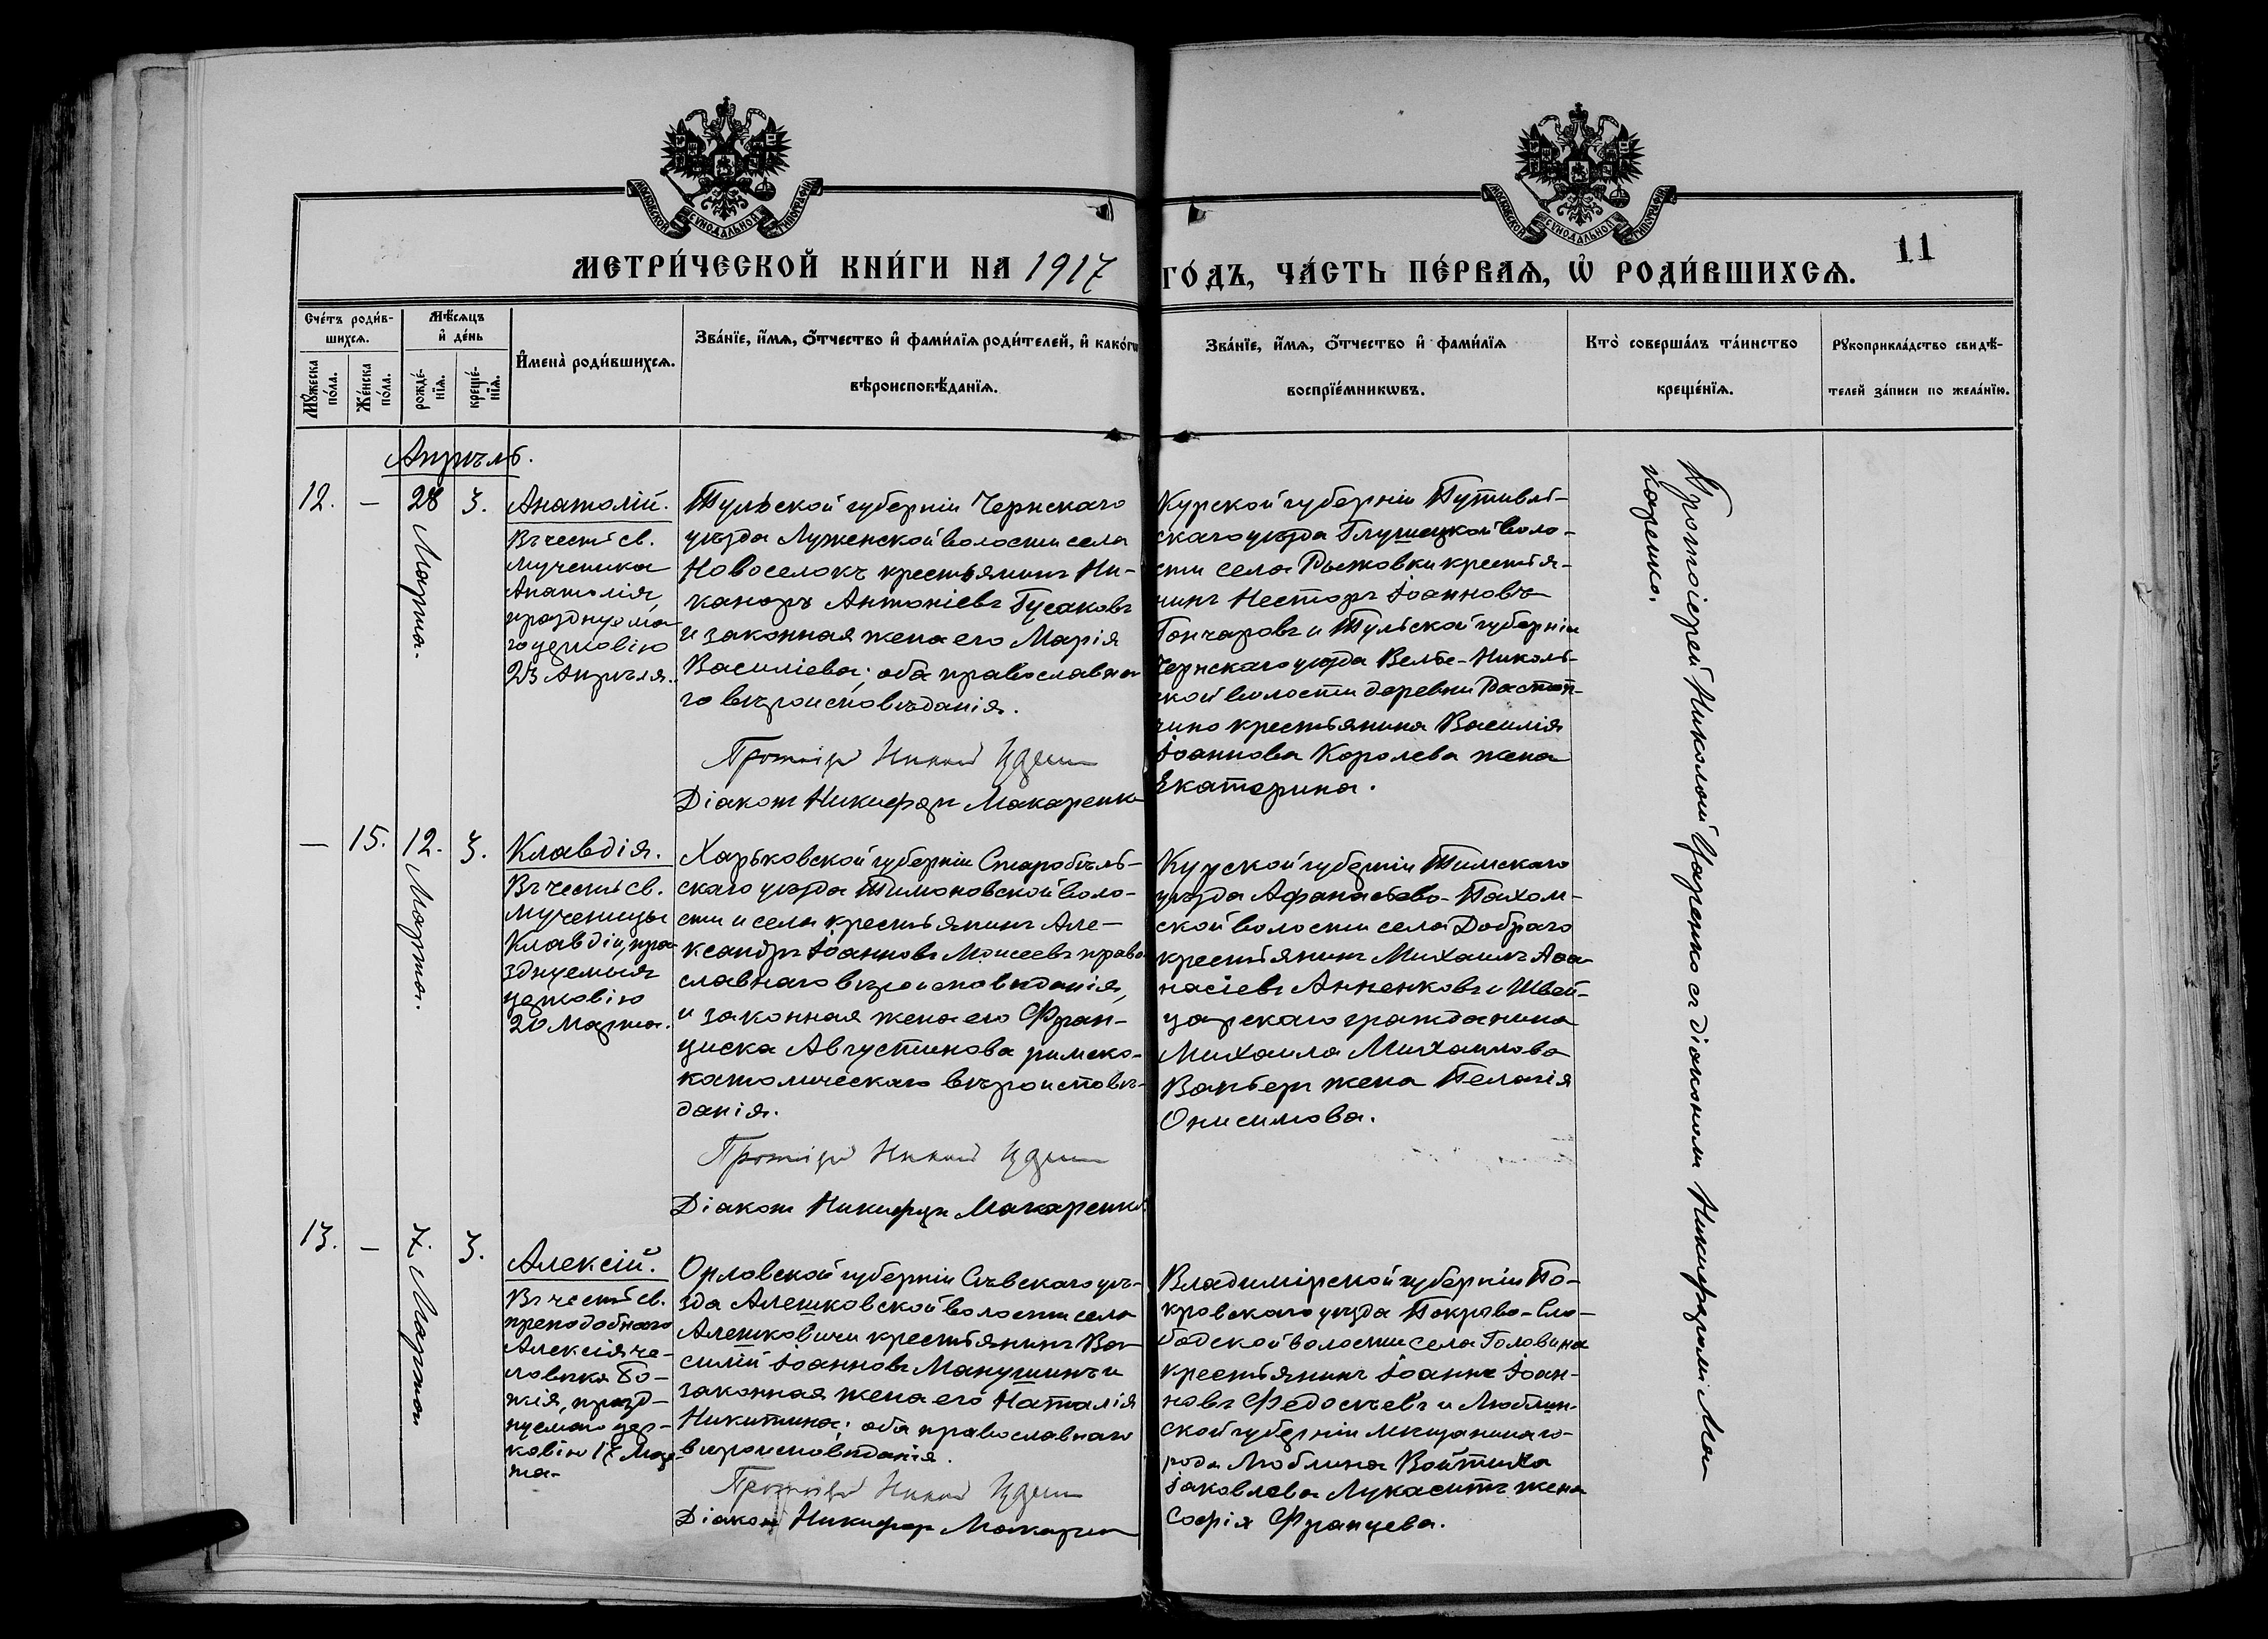 МОСКОВСКОЙ СѴНОДАЛЬНОЙ ТИПОГРАФІИ
МОСКОВСКОЙ СѴНОДАЛЬНОЙ ТИПОГРАФІИ
МЕТРИ́ЧЕСКОЙ КНИ́ГИ НА 1917
ГО́ДЪ, ЧА́СТЬ ПЕ́РВАѦ, Ѡ҆ РОДИ́ВШИХСѦ.
11
Сче́тъ роди́в-
шихсѧ.
Мꙋ́жеска по́ла.
Же́нска по́ла.
Мѣ́сѧцъ
и҆ де́нь
рожде́-
нїѧ.
креще́-
нїѧ.
И҆мена̀ роди́вшихсѧ.
Зва́нїе, и҆́мѧ, ѻ҆́тчество и҆ фами́лїѧ роди́телей, и҆ како́гѡ
вѣроисповѣ́данїѧ.
Зва́нїе, и҆́мѧ, ѻ҆́тчество и҆ фами́лїѧ
воспрїе́мникѡвъ.
Кто̀ соверша́лъ та́инство
креще́нїѧ.
Рꙋкоприкла́дство свидѣ́-
телей за́писи по жела́нїю.
Апрѣль.
12. — 28 Марта. 3.
Анатолій.
Въ честь св.
мученика
Анатолія,
празднуема
го церковію
23 Апрѣля.
Тульской губерніи Чернскаго
уѣзда Луженской волости села
Новоселокъ крестьянинъ Ни-
каноръ Антоніевъ Гусаковъ
и законная жена его Марія
Василіева; оба православна
го вѣроисповѣданія.
Діаконъ Никифоръ Макаренко
Курской губерніи Путивль-
скаго уѣзда Глушецкой воло-
сти села Рыжовки крестья-
нинъ Несторъ Іоанновъ
Гончаровъ и Тульской губерніи
Чернскаго уѣзда Велье-Николь-
ской волости деревни Растоп-
чино крестьянина Василія
Іоаннова Королева жена
Екатерина.
— 15. 12. Марта. 3.
Клавдія.
Въ честь св.
мученицы
Клавдіи, пра-
зднуемыя
церковію
20 Марта.
Харьковской губерніи Старобѣль-
скаго уѣзда Тимоновской воло-
сти и села крестьянинъ Але-
ксандръ Іоанновъ Моисеевъ право
славнаго вѣроисповѣданія,
и законная жена его Фран-
циска Августинова римско-
католическаго вѣроисповѣ-
данія.
Діаконъ Никифоръ Макаренко
Курской губерніи Тимскаго
уѣзда Афанасьево-Пахом-
ской волости села Добраго
крестьянинъ Михаилъ Аѳа-
насіевъ Анненковъ и Швей-
царскаго гражданина
Михаила Михаилова
жена Пелагія
Онисимова.
13. — 7. Марта. 3.
Алексій.
Въ честь св.
преподобнаго
Алексія че-
ловѣка Бо-
жія, празд-
нуемаго цер-
ковію 17 Мар
та.
Орловской губерніи Сѣвскаго уѣ-
зда Алешковской волости села
Алешковичи крестьянинъ Ва-
силій Іоанновъ Манушинъ и
законная жена его Наталія
Никитина; оба православнаго
вѣроисповѣданія.
Діаконъ Никифоръ Макаренко
Владимірской губерніи По-
кровскаго уѣзда Покрово-Сло-
бодской волости села Головина
крестьянинъ Іоаннъ Іоан-
новъ Федосѣевъ и Люблин-
ской губерніи мѣщанина го-
рода Люблина Войтиха
Іаковлева Лукасить жена
Софія Францева.
Протоіерей Николай Царенко съ діакономъ Никифоромъ Ма-
каренко.